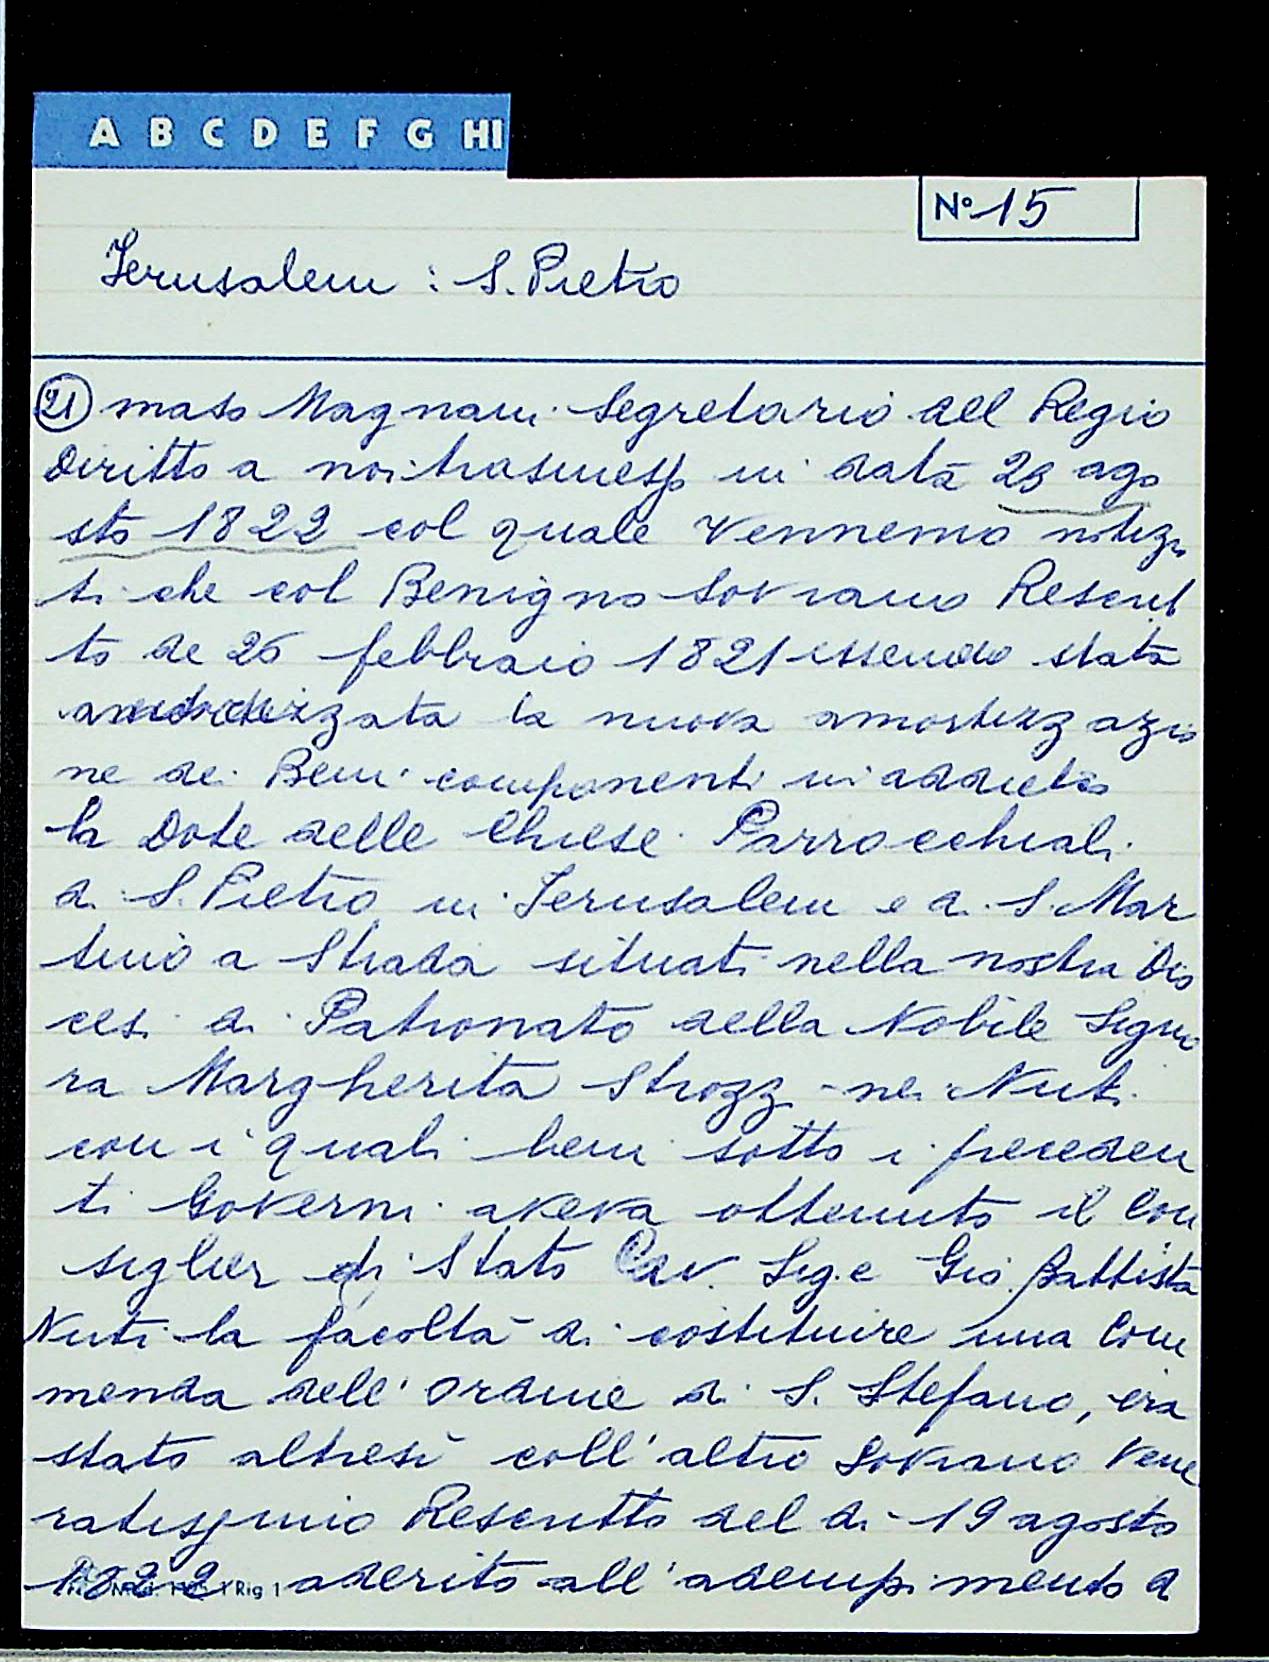 A B C D E F G HI
N° 15
Jerusalem : S. Pietro
21 maso Magnani Segretario del Regio
Diritto a noi trasmessa in data 29 ago
sto 1822 col quale vennemo notizia
ti che col Benigno Sovrano Rescrit
to de 26 febbraio 1821 essendo stata
la nuova amortizzazio
ne dei Beni componenti in addietro
la Dote delle Chiese Parrocchiali
di S. Pietro in Jerusalem e di S. Mar
tino a Strada situati nella nostra Dio
cesi di Patronato della Nobile Signo
ra Margherita Strozzi ne Nuti
con i quali beni sotto i preceden
ti Governi aveva ottenuto il Con
siglier di Stato Cav. Sig.e Gio. Battista
Nuti la facoltà di costituire una Com
menda dell'ordine di S. Stefano, era
stato altresì coll'altro Sovrano Vene
ratissimo Rescritto del di 19 agosto
1822 aderito all'adempimento d
Rig 1